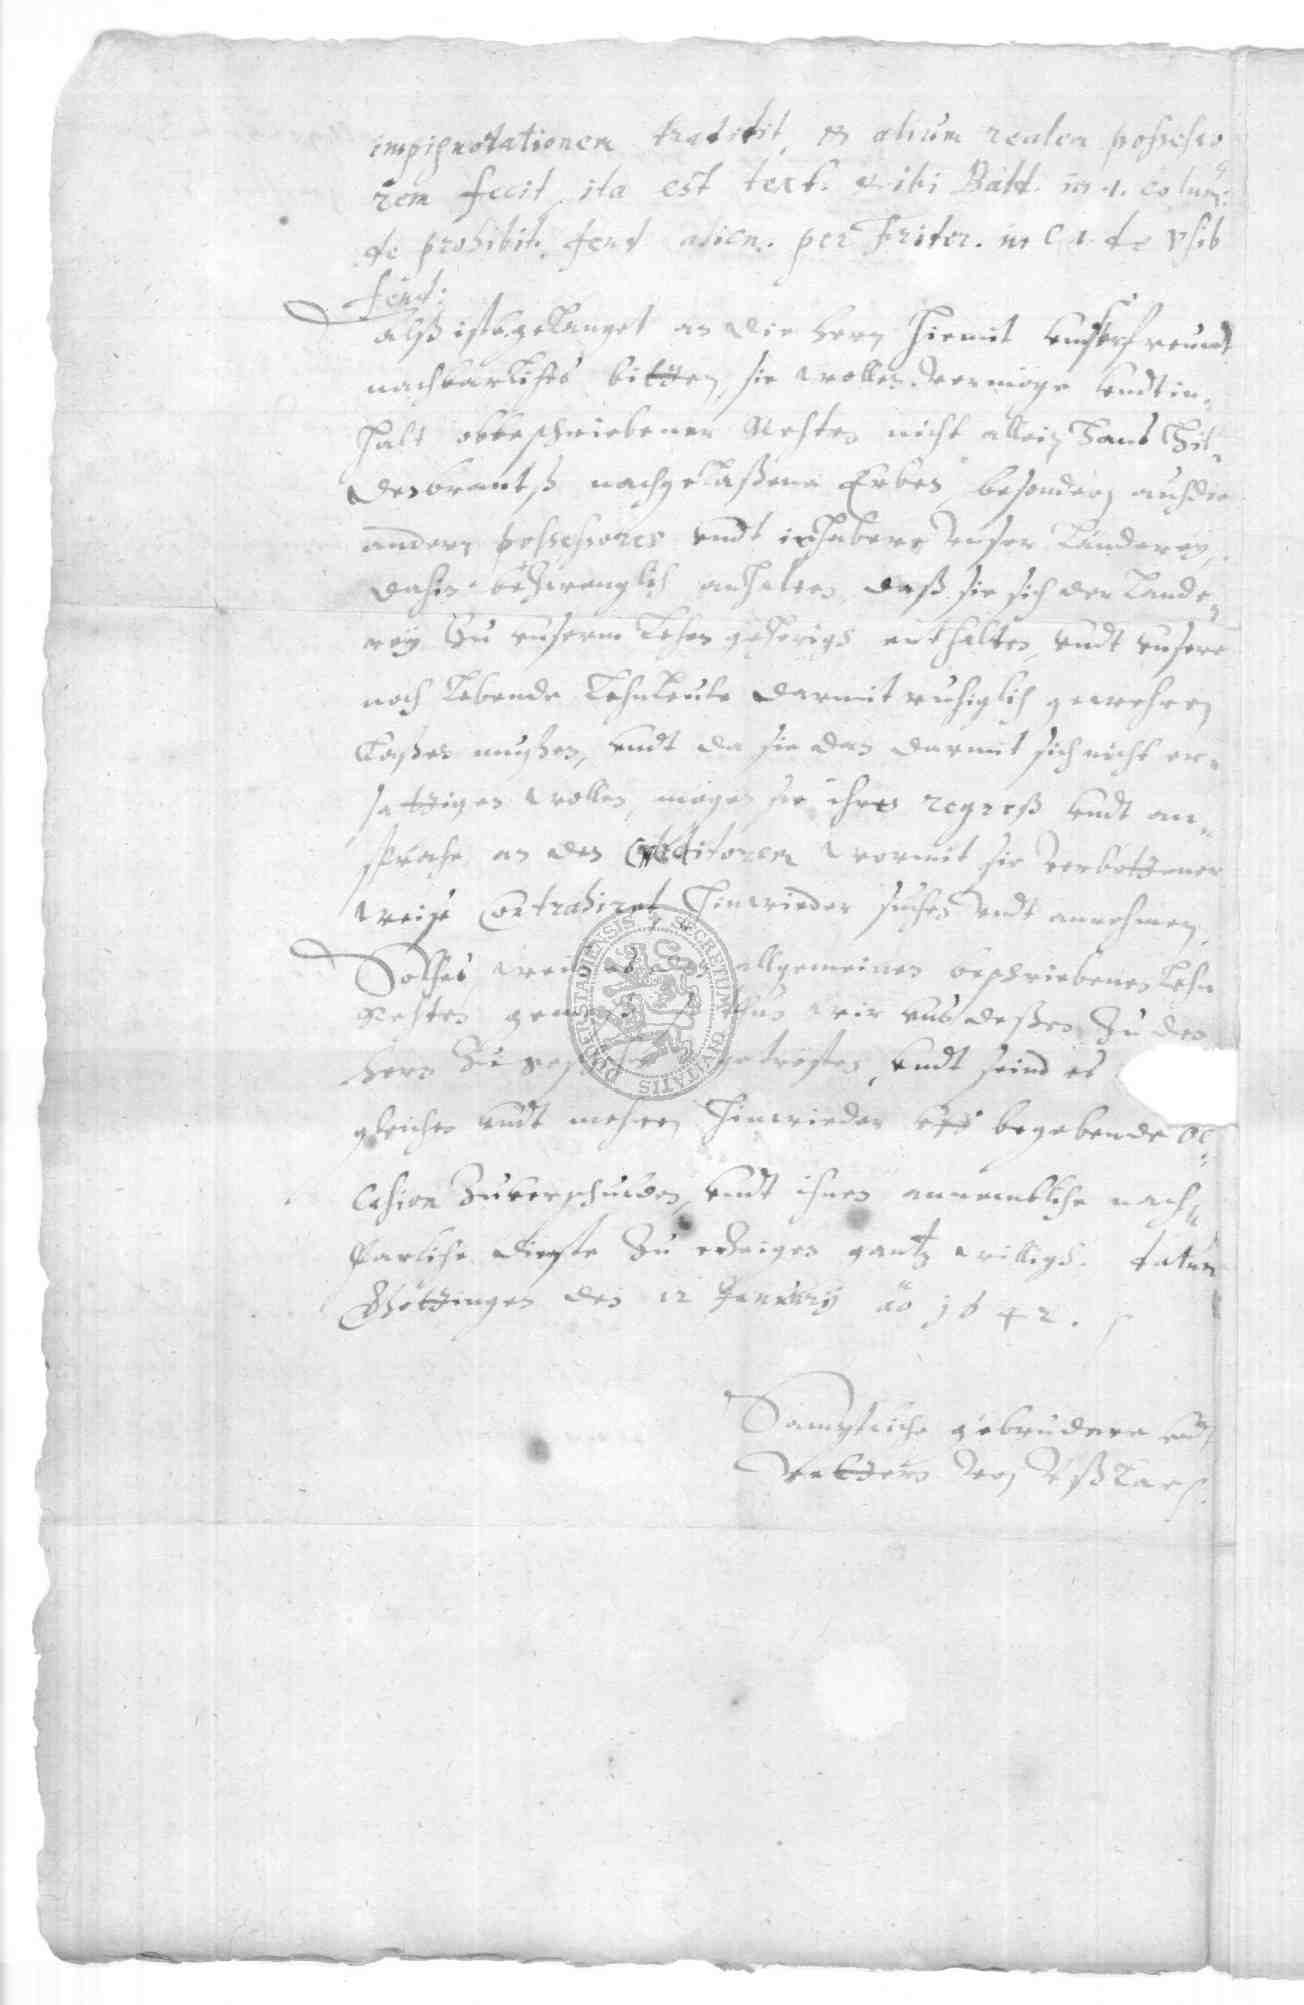 impignorationem tradidit, et alium realem possesso
rem fecit, ita est text. et ibi Bald. in 1. colum:
de prohibit. feud. alien. per Frider. in C 1. de
feud:
Alß ist gelanget an die hern hiemit unser freundt
nachbarliches bitten, sie wollen vermöge undt in-
halt obbeschriebener Rechten nicht allein Hans Hil-
debrantß nachgelaßene Erben, besondern auch die
andern possessores undt inhabere unser Länderey,
dahin anhalten, daß sie sich der Lände-
rey zu unserm Lehen gehörigh enthalten, undt unsere
noch lebende Lehnleute darmit ruhiglich gewehren
laßen mußen, undt da sie dan darmit sich nicht er-
sättigen wollen, mögen sie ihren regreß undt an-
sprache an den Creditoren wormit sie verbottener
weise contrahiret, hinwieder suchen undt annehmen,
Solches, wei allgemeinen beschriebenen Lehn
Rechten gem thun wir uns deßen zu den
hern getrösten, undt seind es
gleiches undt mehren hinwieder begebende oc-
casion zuverschulden, undt ihnen annembliche nach-
barliche dienste zu erzeigen gantz willigh. Datum
Göttingen den 12 January ao 1642.
Sämptliche gebrüdere und
Vettern von Ußlar.
SECRETUM CIVITATIS DUDERSTADIENSIS